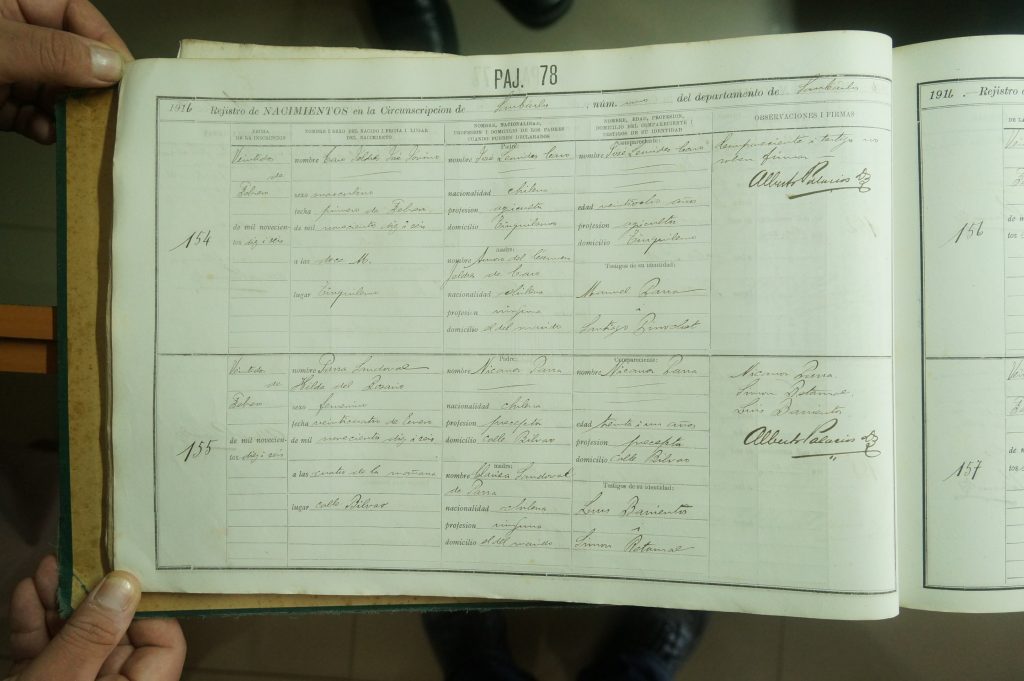 PAJ. 78
1916 Rejistro de NACIMIENTOS en la Circunscripcion de San Carlos, núm. uno del departamento de San Carlos
FECHA DE LA INSCRIPCION
NOMBRE I SEXO DEL NACIDO I FECHA I LUGAR DEL NACIMIENTO.
NOMBRE, NACIONALIDAD, PROFESION I DOMICILIO DE LOS PADRES CUANDO FUEREN DECLARADOS
NOMBRE, EDAD, PROFESION, DOMICILIO DEL COMPARECIENTE I TESTIGOS DE SU IDENTIDAD
OBSERVACIONES I FIRMAS
154
Veintidos
de
Febrero
de mil novecien-
tos diez i seis
nombre Caro José
sexo masculino
fecha primero de Febrero
de mil novecientos diez i seis
a las doce M.
lugar
Padre:
nombre José Leonidas Caro
nacionalidad chilena
profesion agricultor
domicilio
madre:
nombre del Carmen
de Caro
nacionalidad chilena
profesion ninguna
domicilio el del marido
Compareciente:
nombre José Leonidas Caro
edad veintiocho años
profesion agricultor
domicilio
Testigos de su identidad:
Manuel Parra
Santiago Pinochet
Compareciente i testigo no
saben firmar
Alberto Palacios
155
Veintidos
de
Febrero
de mil novecien-
tos diez i seis
nombre Parra Sandoval
Hilda del Rosario
sexo femenino
fecha veinticuatro de Enero
de mil novecientos diez i seis
a las cuatro de la mañana
lugar calle Bilvao
Padre:
nombre Nicanor Parra
nacionalidad chilena
profesion preceptor
domicilio Calle Bilvao
madre:
nombre Clarisa Sandoval
de Parra
nacionalidad chilena
profesion ninguna
domicilio el del marido
Compareciente:
nombre Nicanor Parra
edad treinta i un años
profesion preceptor
domicilio Calle Bilvao
Testigos de su identidad:
Luis Barrientos
Simon Retamal
Nicanor Parra
Simon Retamal
Luis Barrientos
Alberto Palacios
1916. Rejistro
156
157